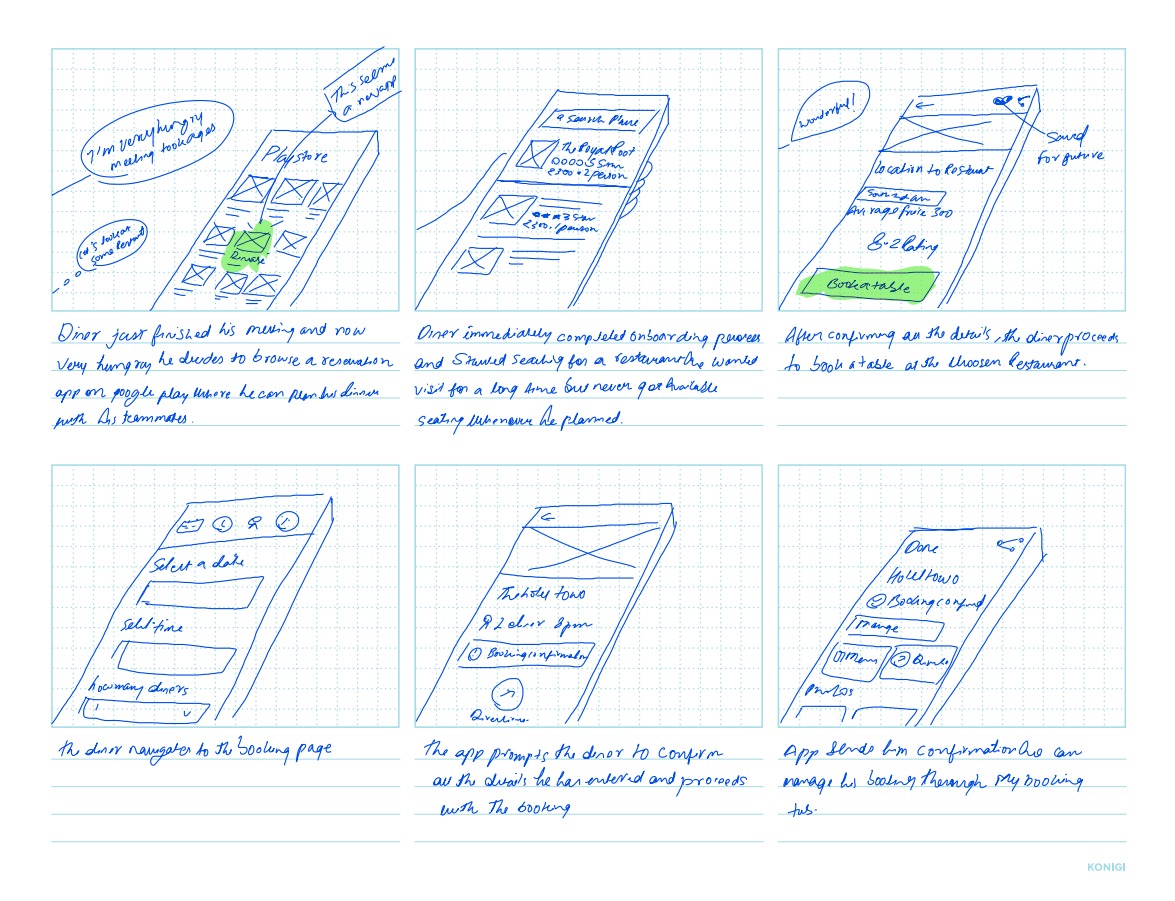 This seems
a new app
I'm very hungry
meeting took ages
Playstore
let's look at
some Restrnt
Diner just finished his meeting and now
very hungry he decides to browse a reservation
app on google play where he can plan his dinner
with his teammates.
Search Place
The Royal Root
5 star
₹300 • 2 person
3 star
₹300. 1 person
Diner immediately completed onboarding process
and Started seating for a restaurant he wanted
visit for a long time but never got Available
seating whenever he planned.
wonderful!
Saved
for future
Location to Restrnt
Average price 300
8.2 Rating
Book a table
After confirming all the details, the diner proceeds
to book a table at the choosen Restaurant.
Select a date
Select time
how many diners
1
the diner navigates to the booking page
The hotel towo
2 diner 8pm
Booking confirmation
Direction
the app prompts the diner to confirm
all the details he has entered and proceeds
with The booking
Done
Hotel towo
Booking confirmed
Mange
Menu
App Sends him confirmation he can
manage his booking through My booking
tab.
KONIGI